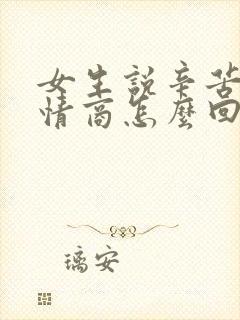 女生說辛苦
情商怎麼回
璃安